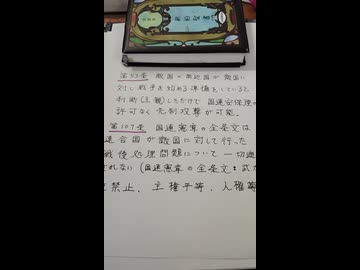 第53条 敵国の周辺国が敵国に
対し戦争を始める準備をしていると
判断(主観)しただけで国連安保理の
許可なく先制攻撃が可能。
第107条 国連憲章の全条文は
連合国が敵国に対して行った
戦後処理問題について一切適
されない(国連憲章の全条文:武力
禁止、主権平等、人権等